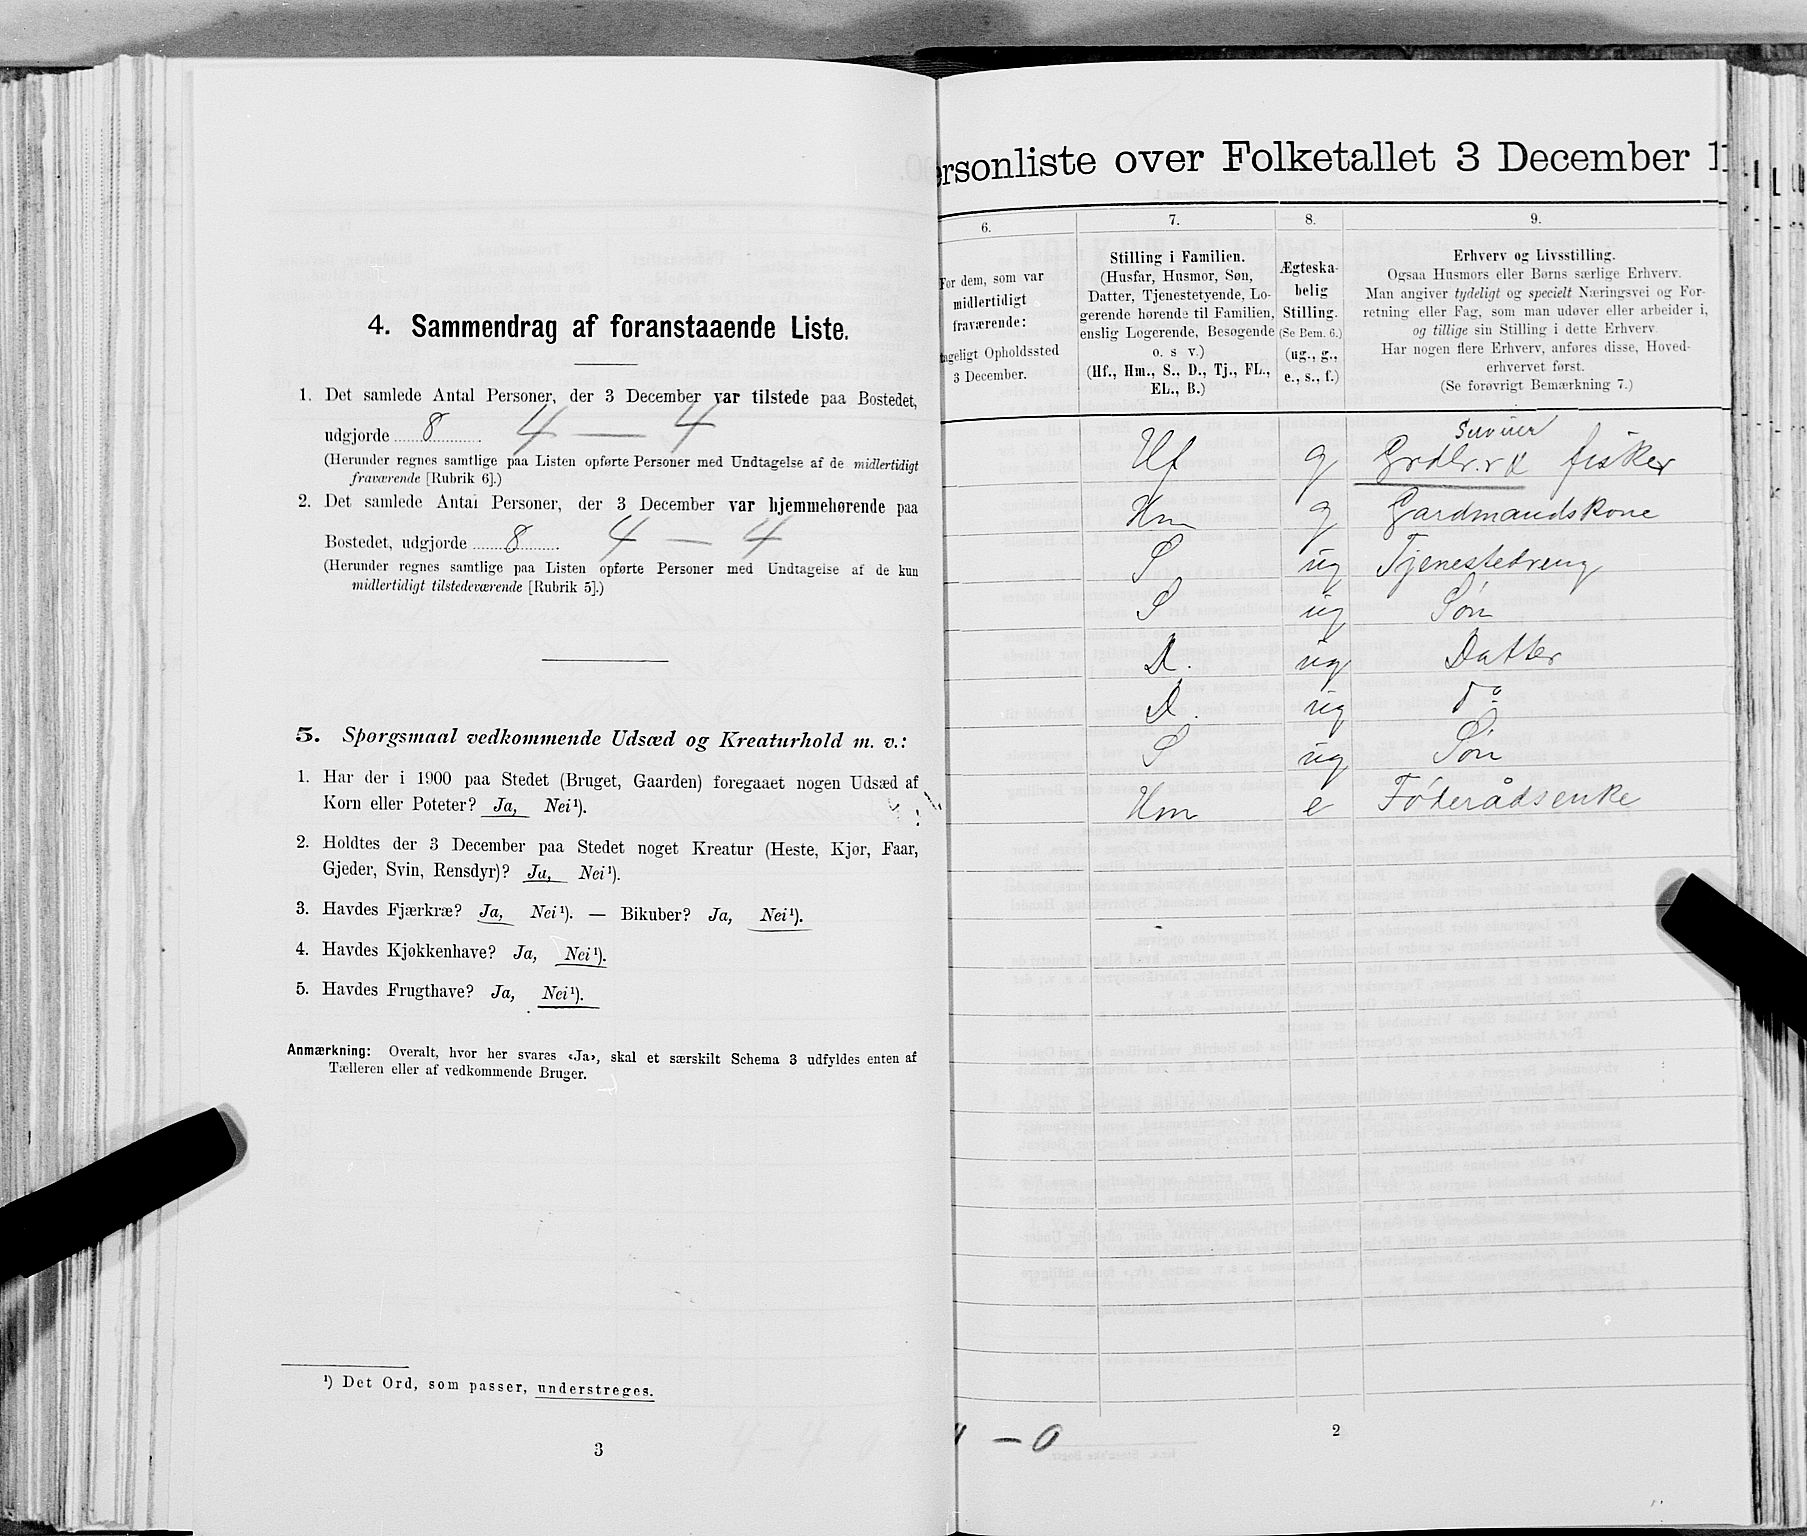 4. Sammendrag af foranstaaende Liste.
1. Det samlede Antal Personer, der 3 December var tilstede paa Bostedet,
udgjorde 8 4 — 4
(Herunder regnes samtlige paa Listen opførte Personer med Undtagelse af de midlertidigt
fraværende [Rubrik 6].)
2. Det samlede Antal Personer, der 3 December var hjemmehørende paa
Bostedet, udgjorde 8. 4 — 4
(Herunder regnes samtlige paa Listen opførte Personer med Undtagelse af de kun
midlertidigt tilstedeværende [Rubrik 5].)
5. Spørgsmaal vedkommende Udsæd og Kreaturhold m. v.:
1. Har der i 1900 paa Stedet (Bruget, Gaarden) foregaaet nogen Udsæd af
Korn eller Poteter? Ja, Nei¹).
2. Holdtes der 3 December paa Stedet noget Kreatur (Heste, Kjør, Faar,
Gjeder, Svin, Rensdyr)? Ja, Nei¹).
3. Havdes Fjærkræ? Ja, Nei¹). — Bikuber? Ja, Nei¹).
4. Havdes Kjøkkenhave? Ja, Nei¹).
5. Havdes Frugthave? Ja, Nei¹).
Anmærkning: Overalt, hvor her svares «Ja», skal et særskilt Schema 3 udfyldes enten af
Tælleren eller af vedkommende Bruger.
¹) Det Ord, som passer, understreges.
3
ersonliste over Folketallet 3 December 1
6.
For dem, som var
midlertidigt
fraværende:
ageligt Opholdssted
3 December.
7.
Stilling i Familien.
(Husfar, Husmor, Søn,
Datter, Tjenestetyende, Lo-
gerende hørende til Familien,
enslig Logerende, Besøgende
o. s v.)
(Hf., Hm., S., D., Tj., FL.,
EL., B.)
8.
Ægteska-
belig
Stilling.
(Se Bem. 6.)
(ug., g.,
e., s., f.)
9.
Erhverv og Livsstilling.
Ogsaa Husmors eller Børns særlige Erhverv.
Man angiver tydeligt og specielt Næringsvei og For-
retning eller Fag, som man udøver eller arbeider i,
og tillige sin Stilling i dette Erhverv.
Har nogen flere Erhverv, anføres disse, Hoved-
erhvervet først.
(Se forøvrigt Bemærkning 7.)
Hf g fisker
Hm g Gardmandskone
S ug Tjenestedreng
S ug Søn
D. ug Datter
D. ug do
S ug Søn
Hm e Føderådsenke
4 — 0
2